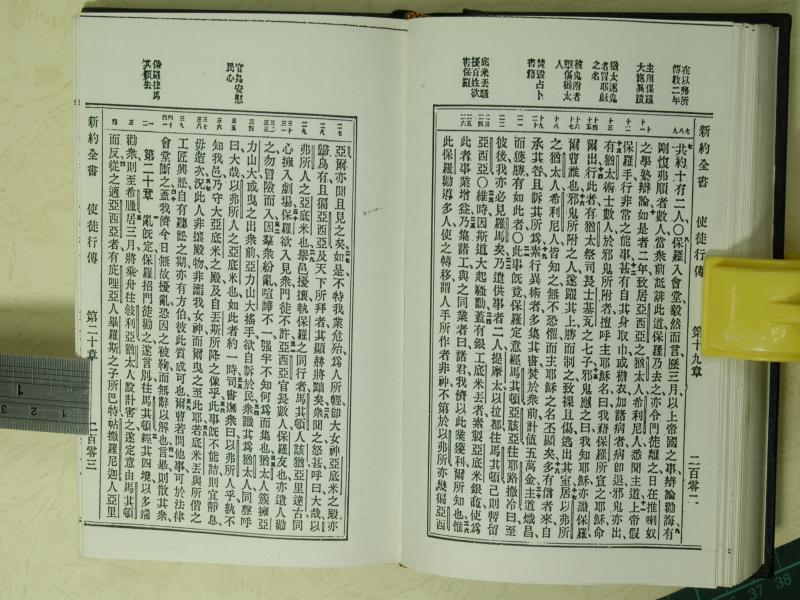 在以弗所
傳敎二年
主用保羅
大施異蹟
猶太逐鬼
者冒耶穌
之名
被鬼附者
擊傷猶太
人
焚毀占卜
書籍
底米丟騷
擾百姓欲
害保羅
新約全書 使徒行傳 第十九章 二百零二
共約十有二人〇保羅入會堂毅然而言歷三月以上帝國之事辯論勸誨有
剛愎弗順者數人當衆前詆誹此道保羅乃去之亦令門徒離之日在推喇奴
之學塾辯論如是者二年致居亞西亞之猶太人希利尼人悉聞主道上帝假
保羅手行非常之能事甚有自其身取巾或襜衣加諸病者病卽退邪鬼亦出
有猶太術士數人於邪鬼所附者擅呼主耶穌名曰我藉保羅所宣之耶穌命
爾出行此者有猶太祭司長士基瓦之七子邪鬼應之曰我知耶穌亦識保羅
爾曹誰也邪鬼所附之人遂躍其上勝而制之致裸且傷逃出其室居以弗所
之猶太人希利尼人皆知之無不恐懼而主耶穌之名丕顯矣多有信者來自
承其咎且訴其所爲素行異術者多集其書焚於衆前計值五萬金主道熾昌
而獲勝有如此者〇此事旣竟保羅定意經馬其頓亞該亞往耶路撒冷曰至
彼後我亦必見羅馬矣乃遣供事者二人提摩太以拉都往馬其頓己則暫留
亞西亞〇維時因斯道大起騷動蓋有銀工底米丟者素製亞底米銀龕使爲
此者事業增益乃集諸工與之同業者曰諸君我儕以此業獲利爾所知也惟
此保羅勸導多人使之轉移謂人手所作者非神不第於以弗所亦幾徧亞西
官長安慰
民心
保羅往馬
其頓去
亞爾亦聞且見之矣如是不特我業危殆爲人所輕卽大女神亞底米之殿亦
歸烏有且徧亞西亞及天下所拜者其顯赫將黜矣衆聞之怒甚呼曰大哉以
弗所人之亞底米也舉邑擾攘執保羅之同行者馬其頓人該猶亞里達古同
心擁入劇場保羅欲入見衆門徒不許亞西亞官長數人保羅友也亦遣人勸
之勿冒險而入因羣衆紛亂喧譁不一強半不知何爲而集也猶太人簇擁亞
力山大或曳之出衆前亞力山大搖手欲自訴於民衆識其爲猶太人同聲呼
曰大哉以弗所人之亞底米也如此者約一時司書撫衆曰以弗所人乎孰不
知我邑乃守大亞底米之殿及自丟斯所降之像乎此事旣不能詰則宜靜息
毋造次況此人非攘殿物非謗我女神而爾曳之至此耶若底米丟與所偕之
工匠興訟自有聽訟之期亦有方伯彼此質成可也爾曹若問他事可於法律
會堂斷之蓋我儕今日無故擾亂恐因之被鞫而無辭以解也言畢則散其衆
第二十章 亂旣定保羅招門徒勸之遂言別往馬其頓經其四境以多端
勸衆則至希臘居三月將乘舟往敍利亞猶太人設計害之遂定意由馬其頓
而反從之適亞西亞者有庇哩亞人畢羅斯之子所巴特帖撒羅尼迦人亞里
新約全書 使徒行傳 第二十章 二百零三
1
2
3
37 38